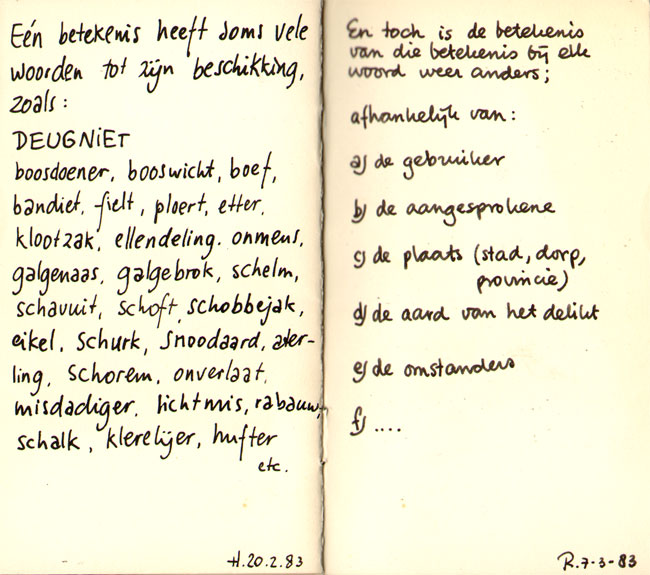 Eén betekenis heeft soms vele
woorden tot zijn beschikking,
zoals:
DEUGNiET
boosdoener, booswicht, boef,
bandiet, fielt, ploert, etter,
klootzak, ellendeling. onmens,
galgenaas, galgebrok, schelm,
schavuit, schoft, schobbejak,
eikel, schurk, snoodaard, ater-
ling, schorem, onverlaat,
misdadiger, lichtmis, rabauw,
schalk, klerelijer, hufter
etc.
H.20.2.83
En toch is de betekenis
van die betekenis bij elk
woord weer anders;
afhankelijk van:
a) de gebruiker
b) de aangesprokene
c) de plaats (stad, dorp,
provincie)
d) de aard van het delikt
e) de omstanders
f) ....
R.7-3-83